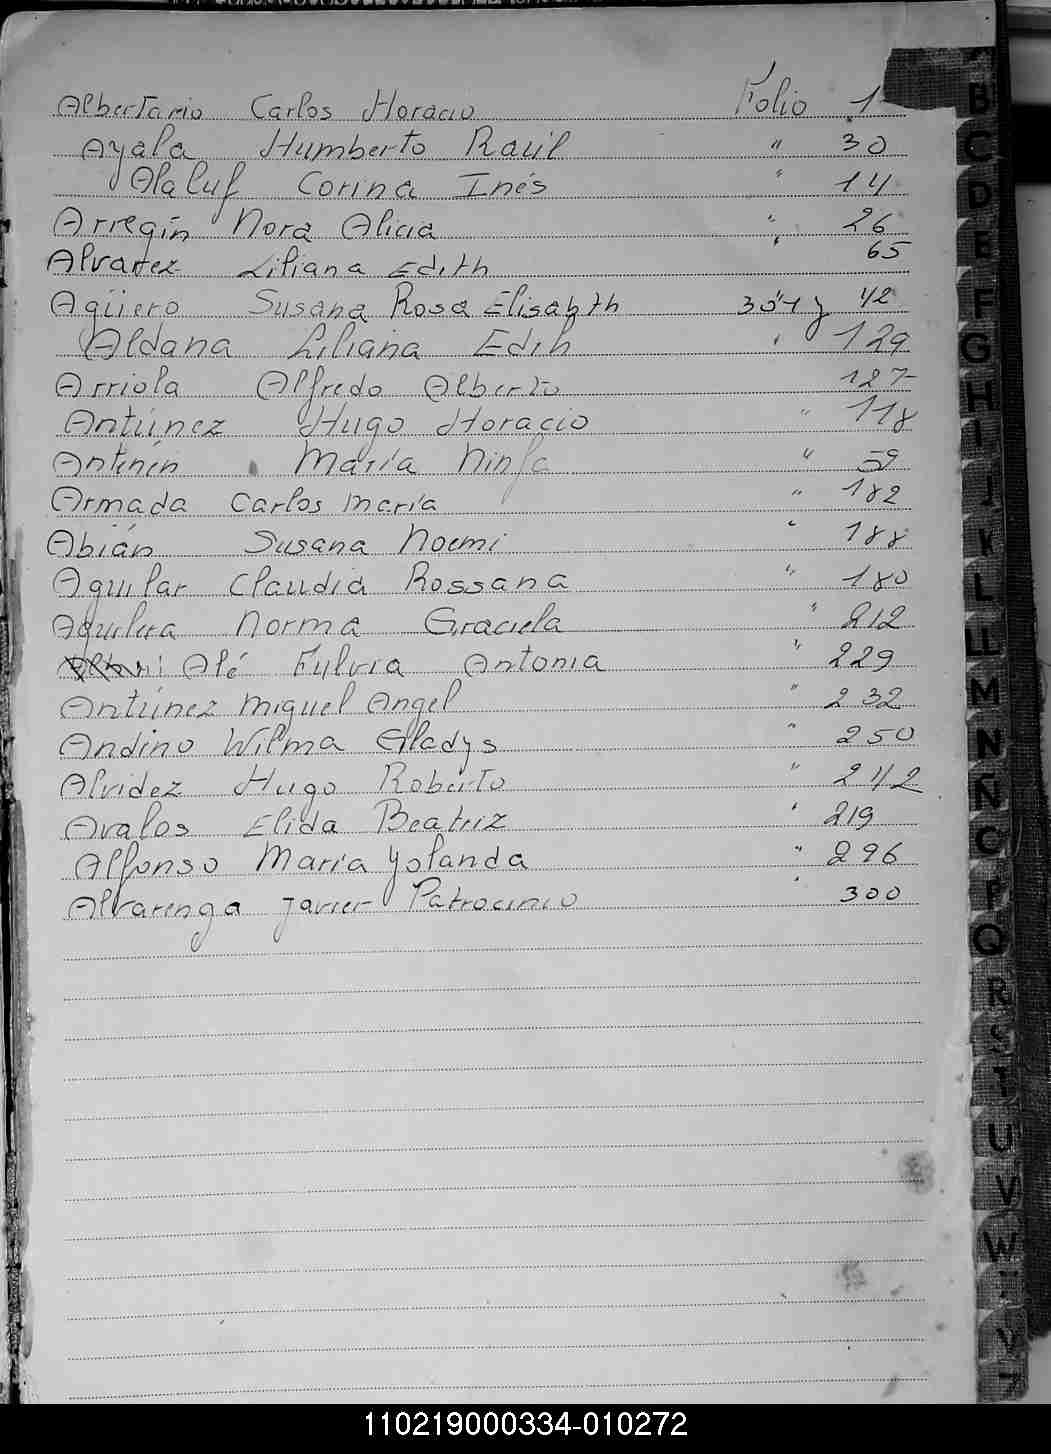 Albertario Carlos Horacio Folio 1
Ayala Humberto Raúl " 30
Alaluf Corina Inés " 14
Arregín Nora Alicia " 26
Alvarez Liliana Edith " 65
Agüero Susana Rosa Elisabth 301 y 42
Aldana Liliana Edih " 129
Arriola Alfredo Alberto 127
Antúnez Hugo Horacio " 118
Antenén María Ninfa " 59
Armada Carlos María " 182
Abián Susana Noemi " 188
Aguilar Claudia Rossana " 180
Aguilera Norma Graciela " 212
Alé Fulvia Antonia " 229
Antúnez Miguel Angel " 232
Andino Wilma Gladys " 250
Alvidez Hugo Roberto " 242
Avalos Elida Beatriz " 219
Alfonso María Yolanda " 296
Alvarenga Javier Patrocinio " 300
B
C
D
E
F
G
H
I
J
K
L
LL
M
N
Ñ
O
P
Q
R
S
T
U
V
W
Y
Z
110219000334-010272